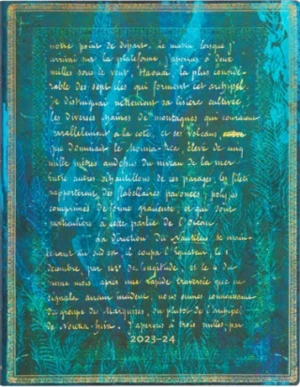 notre point de départ. le matin, lorsque j'
arrivai sur la plateforme j'aperçus, à deux
milles sous le vent, Haouaï, la plus considé-
rable des sept îles qui forment cet archipel.
Je distinguai nettement sa lisière cultivée,
les diverses chaînes de montagnes qui courent
parallèlement à la côte, et ses volcans,
que dominait le Mouna-Rea, élevé de cinq
mille mètres audessus du niveau de la mer.
Entre autres échantillons de ces parages, les filets
rapportèrent des flabellaires pavonées, polypes
comprimés de forme gracieuse, et qui sont
particuliers à cette partie de l'Océan.
La direction du Nautilus se main-
au sud est. il coupa l'Équateur, le 1
décembre, par 142° de longitude, et le 4 du
même mois, après une rapide traversée que ne
signala aucun incident, nous eûmes connaissance
du groupe des Marquises,
de Nouka-hiva. J'aperçus à trois milles, par
2023-24